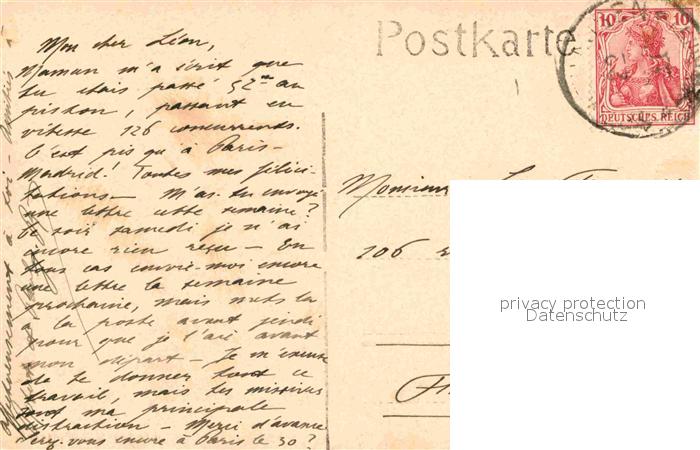 Postkarte
10 10
DEUTSCHES REICH
Mon cher Léon,
Maman m'a écrit que
tu étais passé 52me au
piston, passant en
vitesse 126 concurrents.
C'est pis qu'à Paris-
Madrid! Toutes mes félici-
tations - M'as-tu envoyé
une lettre cette semaine?
Ce soir samedi je n'ai
encore rien reçu - En
tous cas envoie-moi encore
une lettre la semaine
prochaine, mais mets la
à la poste avant jeudi
pour que je l'aie avant
mon départ - Je m'excuse
de te donner tout ce
travail, mais tes missives
sont ma principale
distraction - Merci d'avance
Serez-vous encore à Paris le 30?
affectueusement à toi - Amitiés
Monsieur
106
privacy protection
Datenschutz